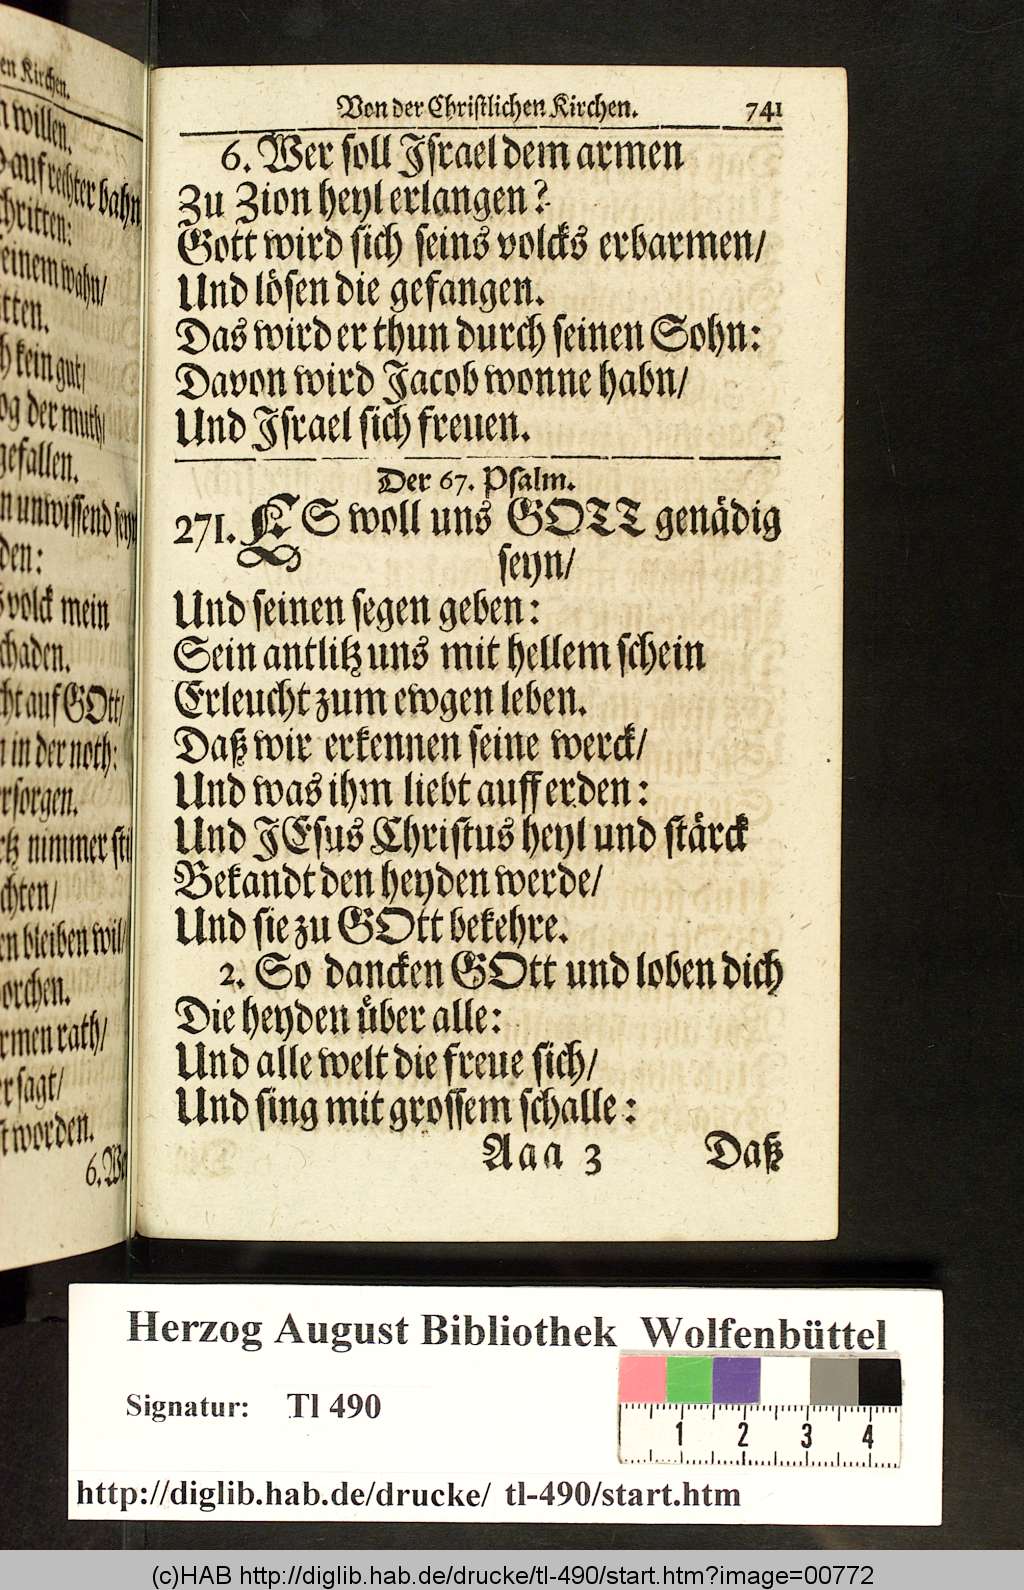 en Kirchen.
n willen.
auf rechter bahn
chritten:
einem wahn/
tten.
h kein gut/
og der muth/
gefallen.
n unwissend seyn
den:
s volck mein
chaden.
cht auf GOtt/
n in der noth:
ersorgen.
rtz nimmer stil
chten/
en bleiben wil/
orchen.
rmen rath/
er sagt/
st worden.
6. We
Von der Christlichen Kirchen. 741
6. Wer soll Israel dem armen
Zu Zion heyl erlangen?
Gott wird sich seins volcks erbarmen/
Und lösen die gefangen.
Das wird er thun durch seinen Sohn:
Davon wird Jacob wonne habn/
Und Israel sich freuen.
Der 67. Psalm.
271. ES woll uns GOTT genädig
seyn/
Und seinen segen geben:
Sein antlitz uns mit hellem schein
Erleucht zum ewgen leben.
Daß wir erkennen seine werck/
Und was ihm liebt auff erden:
Und JEsus Christus heyl und stärck
Bekandt den heyden werde/
Und sie zu GOtt bekehre.
2. So dancken GOtt und loben dich
Die heyden über alle:
Und alle welt die freue sich/
Und sing mit grossem schalle:
Aaa 3 Daß
Herzog August Bibliothek Wolfenbüttel
Signatur: Tl 490
1 2 3 4
http://diglib.hab.de/drucke/ tl-490/start.htm
(c)HAB http://diglib.hab.de/drucke/tl-490/start.htm?image=00772